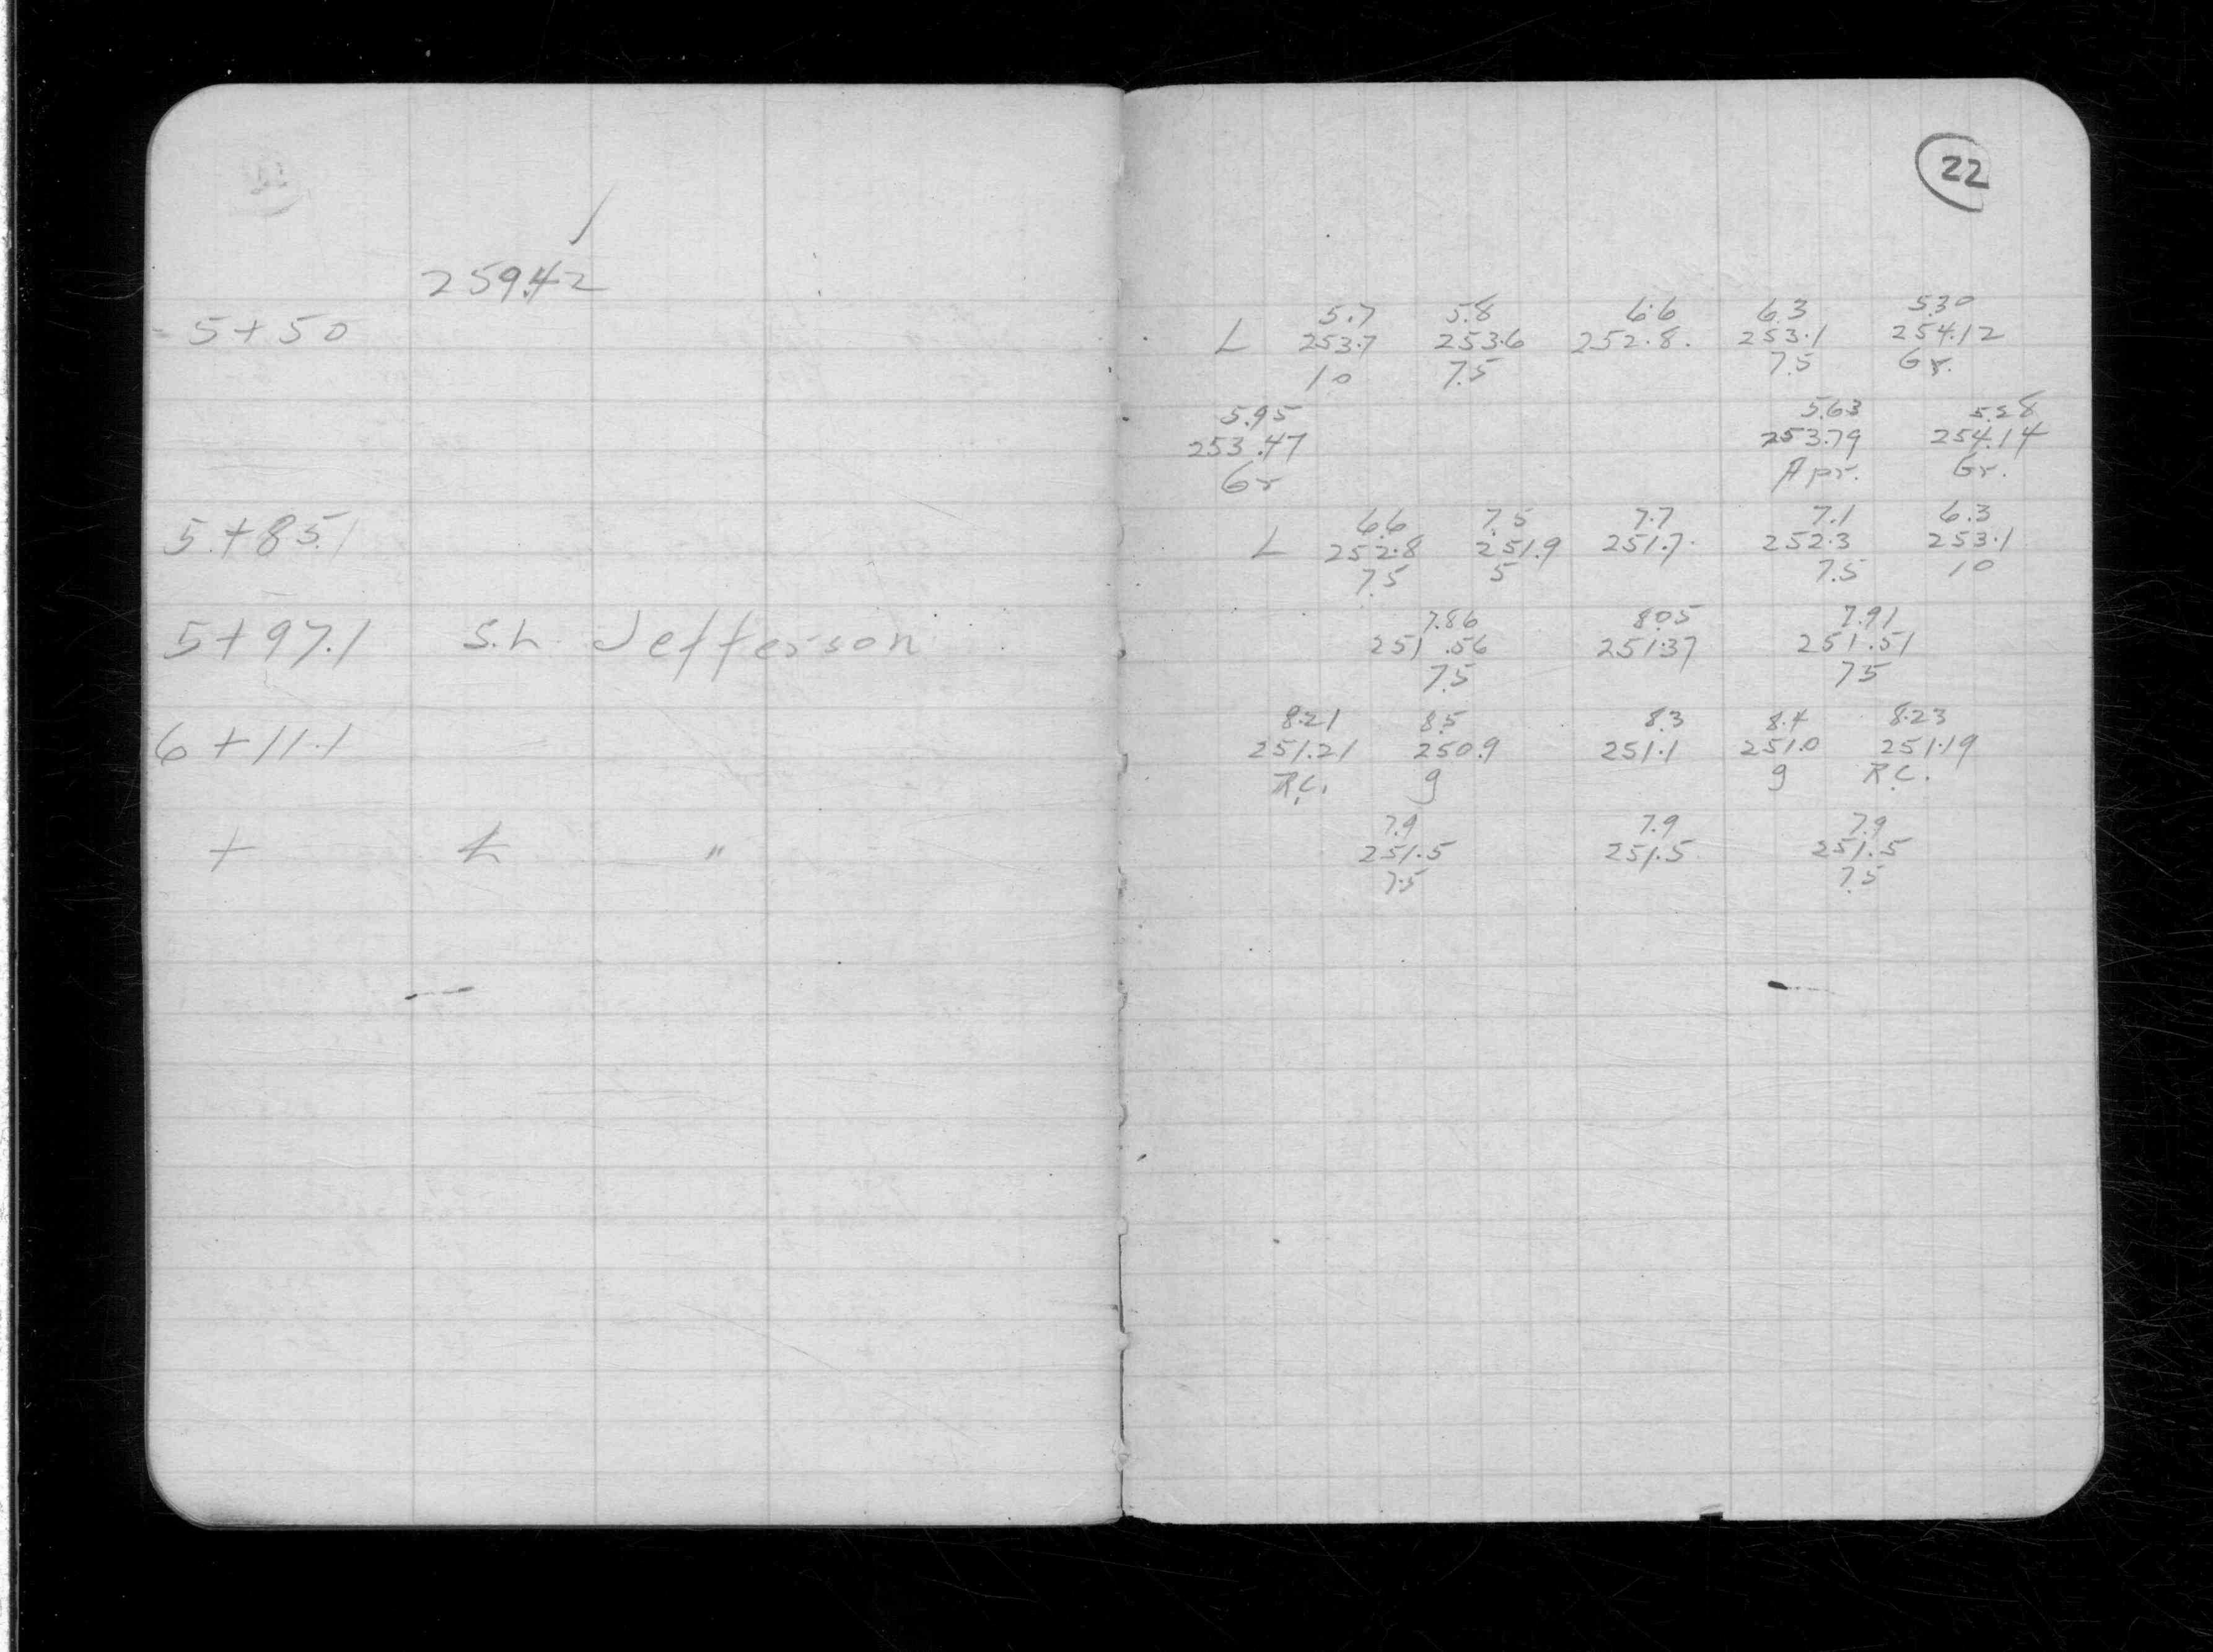 22
259.42
5+50
5.7 5.8 6.6 6.3 5.30
L 253.7 253.6 252.8 253.1 254.12
10 7.5 7.5 Gr.
5.95 5.63 5.28
253.47 253.79 254.14
Gr Apr. Gr.
5+85.1
6.6 7.5 7.7 7.1 6.3
L 252.8 251.9 251.7 252.3 253.1
7.5 5 7.5 10
5+97.1 S.L. Jefferson
7.86 8.05 7.91
251.56 251.37 251.51
7.5 75
6+11.1
8.21 8.5 8.3 8.4 8.23
251.21 250.9 251.1 251.0 251.19
R.C. g g R.C.
+ "
7.9 7.9 7.9
251.5 251.5 251.5
7.5 7.5